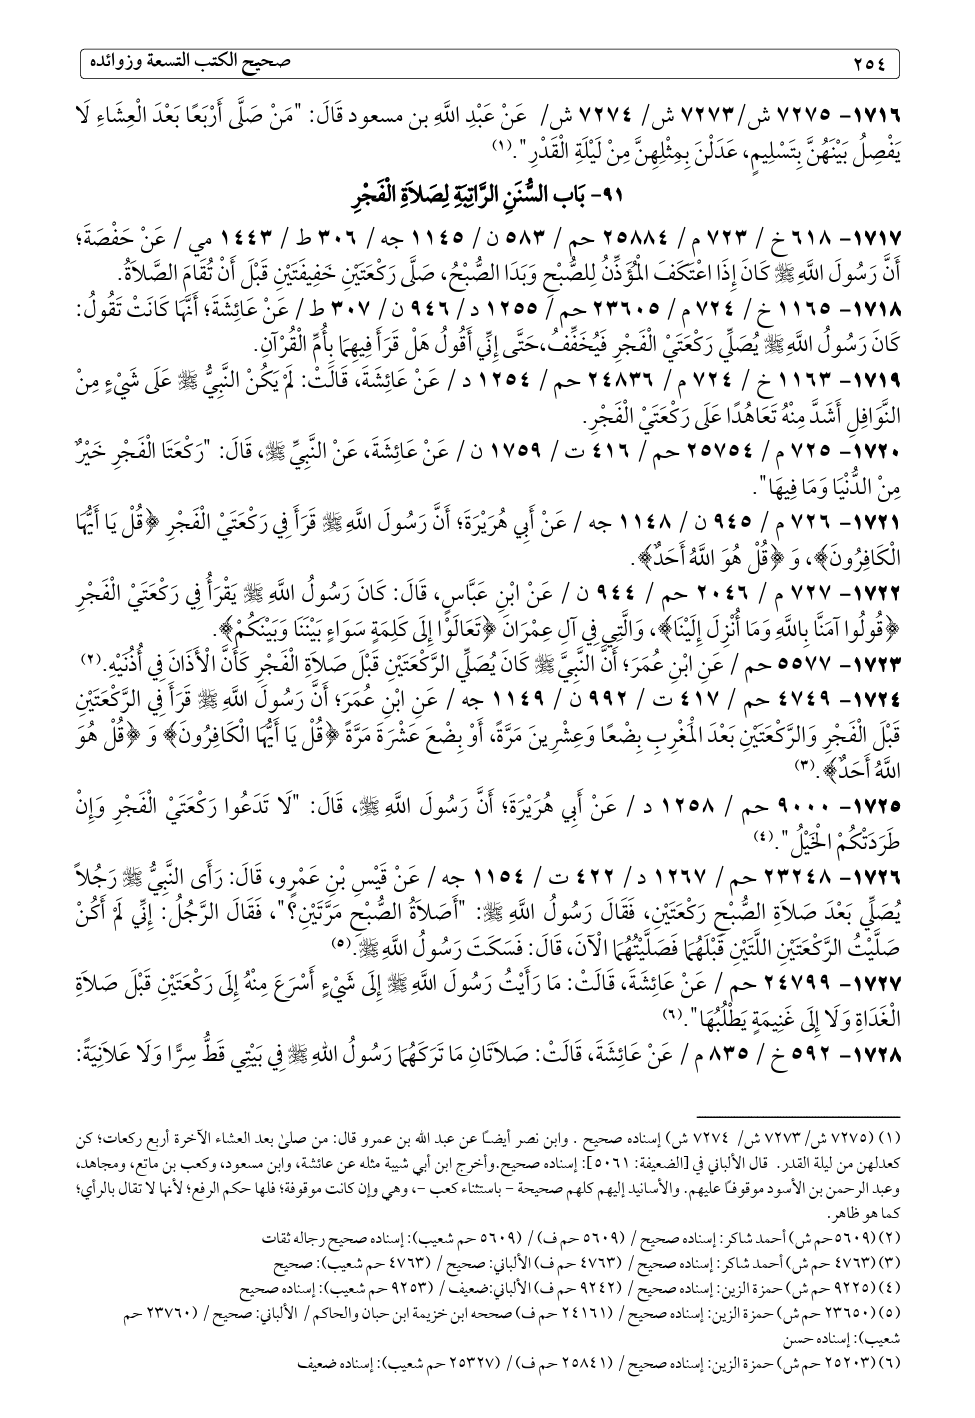 ٢٥٤ صحيح الكتب التسعة وزوائده
١٧١٦- ٧٢٧٥ ش/ ٧٢٧٣ ش/ ٧٢٧٤ ش/ عَنْ عَبْدِ اللَّهِ بن مسعود قَالَ: "مَنْ صَلَّى أَرْبَعًا بَعْدَ الْعِشَاءِ لَا
يَفْصِلُ بَيْنَهُنَّ بِتَسْلِيمٍ، عَدَلْنَ بِمِثْلِهِنَّ مِنْ لَيْلَةِ الْقَدْرِ".(١)
٩١- بَاب السُّنَنِ الرَّاتِبَةِ لِصَلاَةِ الْفَجْرِ
١٧١٧- ٦١٨ خ/ ٧٢٣ م/ ٢٥٨٨٤ حم/ ٥٨٣ ن/ ١١٤٥ جه/ ٣٠٦ ط/ ١٤٤٣ مي/ عَنْ حَفْصَةَ؛
أَنَّ رَسُولَ اللَّهِ ﷺ كَانَ إِذَا اعْتَكَفَ الْمُؤَذِّنُ لِلصُّبْحِ وَبَدَا الصُّبْحُ، صَلَّى رَكْعَتَيْنِ خَفِيفَتَيْنِ قَبْلَ أَنْ تُقَامَ الصَّلاَةُ.
١٧١٨- ١١٦٥ خ/ ٧٢٤ م/ ٢٣٦٠٥ حم/ ١٢٥٥ د/ ٩٤٦ ن/ ٣٠٧ ط/ عَنْ عَائِشَةَ؛ أَنَّهَا كَانَتْ تَقُولُ:
كَانَ رَسُولُ اللَّهِ ﷺ يُصَلِّي رَكْعَتَيْ الْفَجْرِ فَيُخَفِّفُ،حَتَّى إِنِّي أَقُولُ هَلْ قَرَأَ فِيهِمَا بِأُمِّ الْقُرْآنِ.
١٧١٩- ١١٦٣ خ/ ٧٢٤ م/ ٢٤٨٣٦ حم/ ١٢٥٤ د/ عَنْ عَائِشَةَ، قَالَتْ: لَمْ يَكُنْ النَّبِيُّ ﷺ عَلَى شَيْءٍ مِنْ
النَّوَافِلِ أَشَدَّ مِنْهُ تَعَاهُدًا عَلَى رَكْعَتَيْ الْفَجْرِ.
١٧٢٠- ٧٢٥ م/ ٢٥٧٥٤ حم/ ٤١٦ ت/ ١٧٥٩ ن/ عَنْ عَائِشَةَ، عَنْ النَّبِيِّ ﷺ، قَالَ: "رَكْعَتَا الْفَجْرِ خَيْرٌ
مِنْ الدُّنْيَا وَمَا فِيهَا".
١٧٢١- ٧٢٦ م/ ٩٤٥ ن/ ١١٤٨ جه/ عَنْ أَبِي هُرَيْرَةَ؛ أَنَّ رَسُولَ اللَّهِ ﷺ قَرَأَ فِي رَكْعَتَيْ الْفَجْرِ ﴿قُلْ يَا أَيُّهَا
الْكَافِرُونَ﴾، وَ ﴿قُلْ هُوَ اللَّهُ أَحَدٌ﴾.
١٧٢٢- ٧٢٧ م/ ٢٠٤٦ حم/ ٩٤٤ ن/ عَنْ ابْنِ عَبَّاسٍ، قَالَ: كَانَ رَسُولُ اللَّهِ ﷺ يَقْرَأُ فِي رَكْعَتَيْ الْفَجْرِ
﴿قُولُوا آمَنَّا بِاللَّهِ وَمَا أُنْزِلَ إِلَيْنَا﴾، وَالَّتِي فِي آلِ عِمْرَانَ ﴿تَعَالَوْا إِلَى كَلِمَةٍ سَوَاءٍ بَيْنَنَا وَبَيْنَكُمْ﴾.
١٧٢٣- ٥٥٧٧ حم/ عَنِ ابْنِ عُمَرَ؛ أَنَّ النَّبِيَّ ﷺ كَانَ يُصَلِّي الرَّكْعَتَيْنِ قَبْلَ صَلاَةِ الْفَجْرِ كَأَنَّ الْأَذَانَ فِي أُذُنَيْهِ.(٢)
١٧٢٤- ٤٧٤٩ حم/ ٤١٧ ت/ ٩٩٢ ن/ ١١٤٩ جه/ عَنِ ابْنِ عُمَرَ؛ أَنَّ رَسُولَ اللَّهِ ﷺ قَرَأَ فِي الرَّكْعَتَيْنِ
قَبْلَ الْفَجْرِ وَالرَّكْعَتَيْنِ بَعْدَ الْمَغْرِبِ بِضْعًا وَعِشْرِينَ مَرَّةً، أَوْ بِضْعَ عَشْرَةَ مَرَّةً ﴿قُلْ يَا أَيُّهَا الْكَافِرُونَ﴾ وَ ﴿قُلْ هُوَ
اللَّهُ أَحَدٌ﴾.(٣)
١٧٢٥- ٩٠٠٠ حم/ ١٢٥٨ د/ عَنْ أَبِي هُرَيْرَةَ؛ أَنَّ رَسُولَ اللَّهِ ﷺ، قَالَ: "لَا تَدَعُوا رَكْعَتَيْ الْفَجْرِ وَإِنْ
طَرَدَتْكُمْ الْخَيْلُ".(٤)
١٧٢٦- ٢٣٢٤٨ حم/ ١٢٦٧ د/ ٤٢٢ ت/ ١١٥٤ جه/ عَنْ قَيْسِ بْنِ عَمْرٍو، قَالَ: رَأَى النَّبِيُّ ﷺ رَجُلاً
يُصَلِّي بَعْدَ صَلاَةِ الصُّبْحِ رَكْعَتَيْنِ، فَقَالَ رَسُولُ اللَّهِ ﷺ: "أَصَلاَةُ الصُّبْحِ مَرَّتَيْنِ؟"، فَقَالَ الرَّجُلُ: إِنِّي لَمْ أَكُنْ
صَلَّيْتُ الرَّكْعَتَيْنِ اللَّتَيْنِ قَبْلَهُمَا فَصَلَّيْتُهُمَا الْآنَ، قَالَ: فَسَكَتَ رَسُولُ اللَّهِ ﷺ.(٥)
١٧٢٧- ٢٤٧٩٩ حم/ عَنْ عَائِشَةَ، قَالَتْ: مَا رَأَيْتُ رَسُولَ اللَّهِ ﷺ إِلَى شَيْءٍ أَسْرَعَ مِنْهُ إِلَى رَكْعَتَيْنِ قَبْلَ صَلاَةِ
الْغَدَاةِ وَلَا إِلَى غَنِيمَةٍ يَطْلُبُهَا".(٦)
١٧٢٨- ٥٩٢ خ/ ٨٣٥ م/ عَنْ عَائِشَةَ، قَالَتْ: صَلاَتَانِ مَا تَرَكَهُمَا رَسُولُ اللهِ ﷺ فِي بَيْتِي قَطُّ سِرًّا وَلَا عَلاَنِيَةً:
(١) (٧٢٧٥ ش/ ٧٢٧٣ ش/ ٧٢٧٤ ش) إسناده صحيح . وابن نصر أيضًا عن عبد الله بن عمرو قال: من صلىٰ بعد العشاء الآخرة أربع ركعات؛ كن
كعدلهن من ليلة القدر. قال الألباني في [الضعيفة: ٥٠٦١]: إسناده صحيح.وأخرج ابن أبي شيبة مثله عن عائشة، وابن مسعود، وكعب بن ماتع، ومجاهد،
وعبد الرحمن بن الأسود موقوفًا عليهم. والأسانيد إليهم كلهم صحيحة - باستثناء كعب -، وهي وإن كانت موقوفة؛ فلها حكم الرفع؛ لأنها لا تقال بالرأي؛
كما هو ظاهر.
(٢) (٥٦٠٩حم ش) أحمد شاكر: إسناده صحيح/ (٥٦٠٩ حم ف)/ (٥٦٠٩ حم شعيب): إسناده صحيح رجاله ثقات
(٣) (٤٧٦٣ حم ش) أحمد شاكر: إسناده صحيح/ (٤٧٦٣ حم ف) الألباني: صحيح/ (٤٧٦٣ حم شعيب): صحيح
(٤) (٩٢٢٥ حم ش) حمزة الزين: إسناده صحيح/ (٩٢٤٢ حم ف) الألباني:ضعيف/ (٩٢٥٣ حم شعيب): إسناده صحيح
(٥) (٢٣٦٥٠ حم ش) حمزة الزين: إسناده صحيح/ (٢٤١٦١ حم ف) صححه ابن خزيمة ابن حبان والحاكم/ الألباني: صحيح/ (٢٣٧٦٠ حم
شعيب): إسناده حسن
(٦) (٢٥٢٠٣ حم ش) حمزة الزين: إسناده صحيح/ (٢٥٨٤١ حم ف)/ (٢٥٣٢٧ حم شعيب): إسناده ضعيف